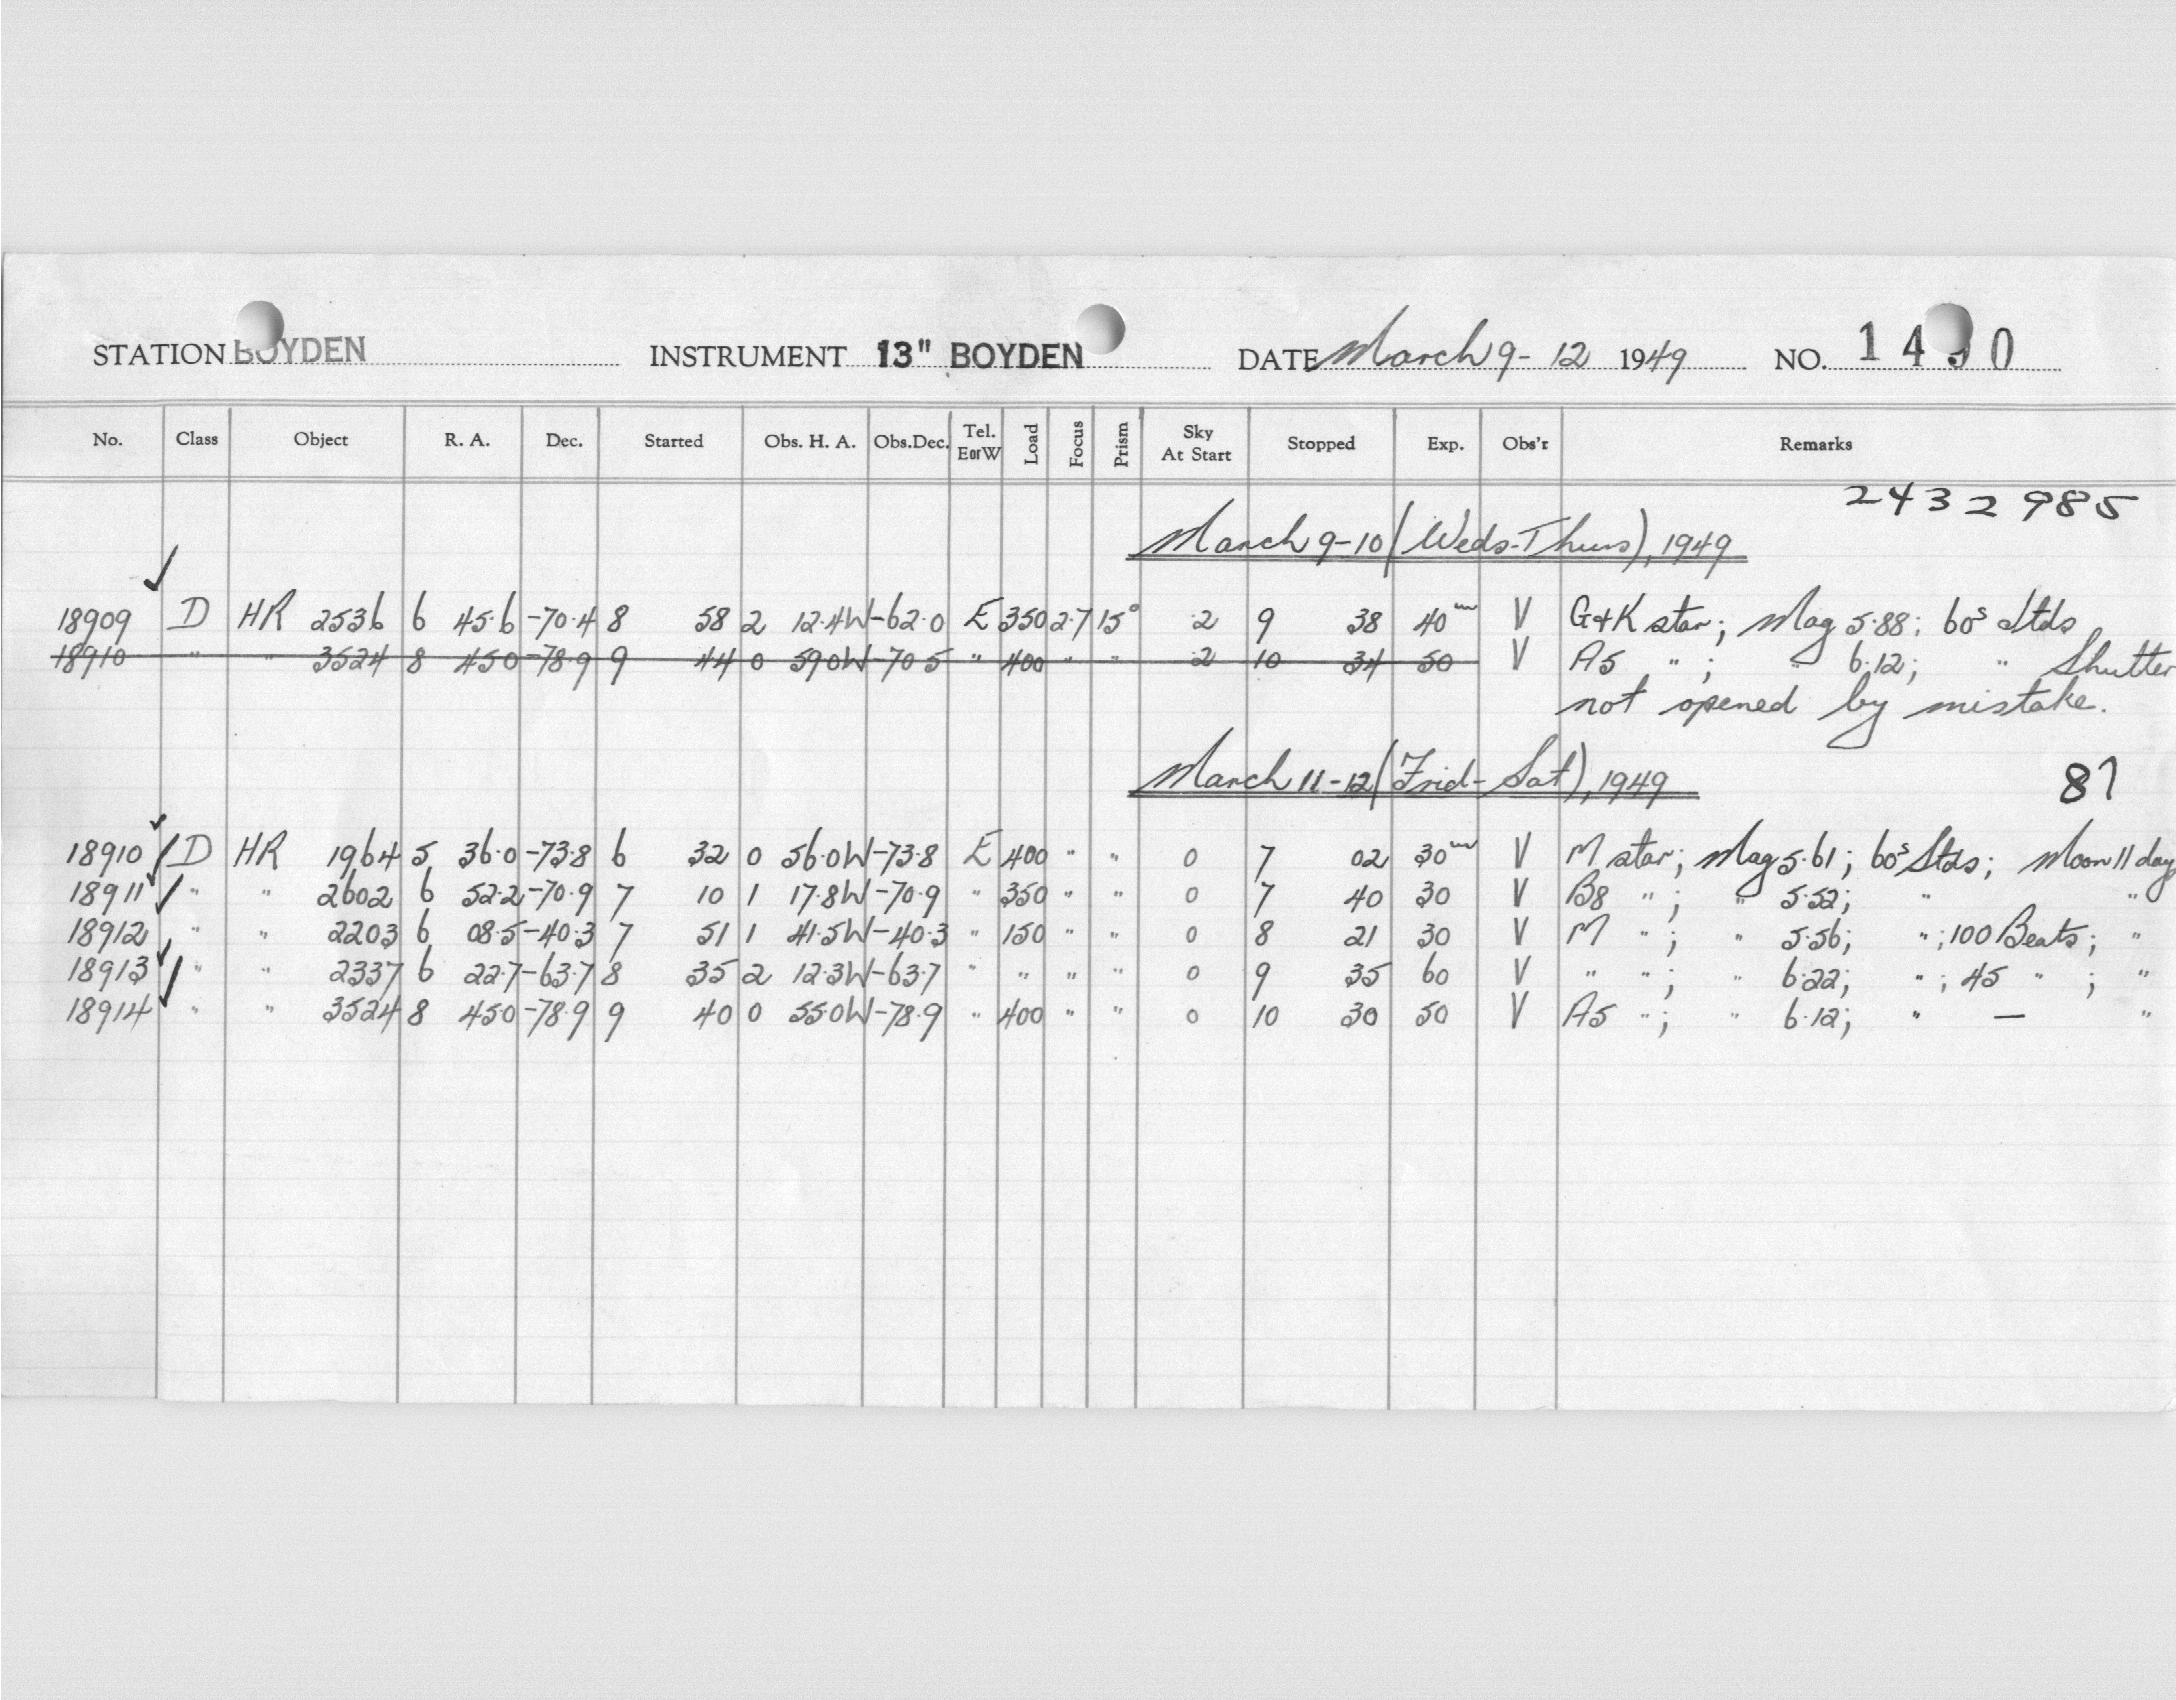 STATION BOYDEN INSTRUMENT 13" BOYDEN DATE March 9-12 1949 NO. 1490
No. Class Object R. A. Dec. Started Obs. H. A. Obs.Dec. Tel. EorW Load Focus Prism Sky At Start Stopped Exp. Obs'r Remarks
2432985
March 9-10 (Weds-Thurs), 1949
18909 D HR 2536 6 45.6 -70.4 8 58 2 12.4W -62.0 E 350 2.7 15° 2 9 38 40m V G+K star; Mag 5.88; 60s Stds
18910 " " 3524 8 45.0 -78.9 9 44 0 59.0W -70.5 " 400 " " 2 10 34 50 V A5 " ; " 6.12; " Shutter
not opened by mistake.
March 11-12 (Frid-Sat), 1949 87
18910 D HR 1964 5 36.0 -73.8 6 32 0 56.0W -73.8 E 400 " " 0 7 02 30m V M star; Mag 5.61; 60s Stds; Moon 11 day
18911 " " 2602 6 52.2 -70.9 7 10 1 17.8W -70.9 " 350 " " 0 7 40 30 V B8 " ; " 5.52; " "
18912 " " 2203 6 08.5 -40.3 7 51 1 41.5W -40.3 " 150 " " 0 8 21 30 V M " ; " 5.56; " ; 100 Beats; "
18913 " " 2337 6 22.7 -63.7 8 35 2 12.3W -63.7 " " " " 0 9 35 60 V " " ; " 6.22; " ; 45 " ; "
18914 " " 3524 8 45.0 -78.9 9 40 0 55.0W -78.9 " 400 " " 0 10 30 50 V A5 " ; " 6.12; " — "